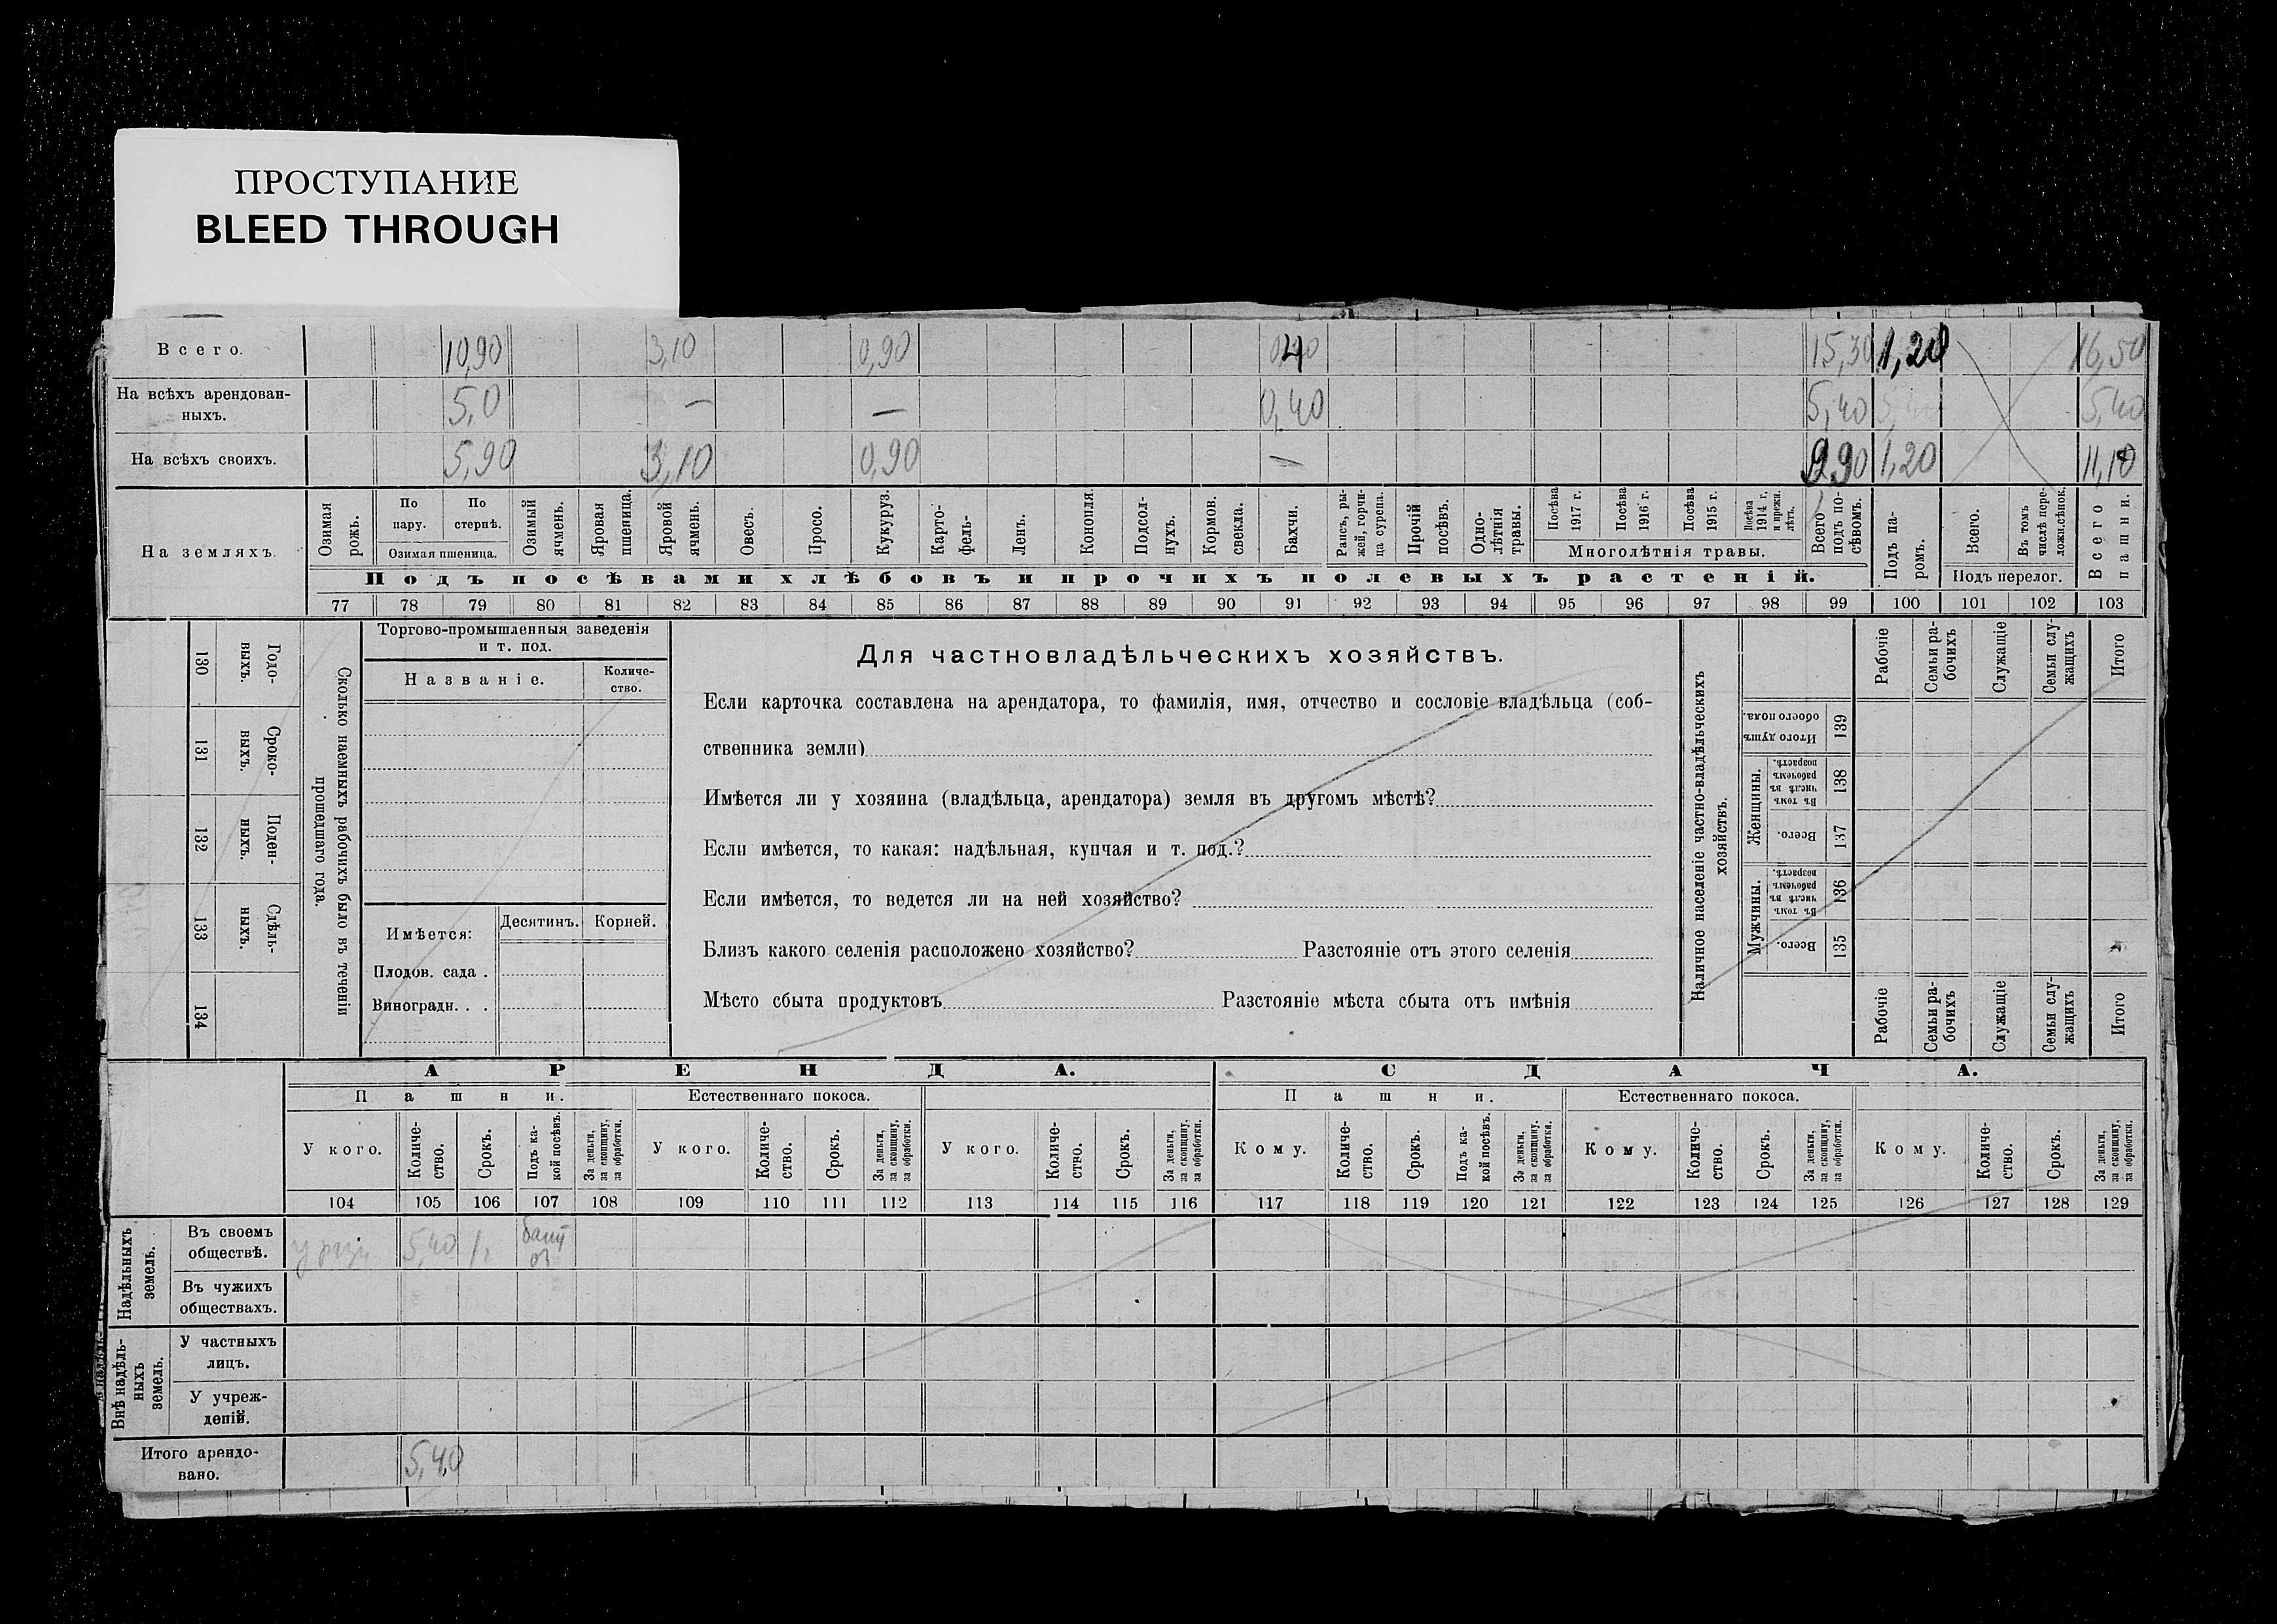 ПРОСТУПАНИЕ
BLEED THROUGH
Всего. 10,90 3,10 0,90 15,30 1,20 16,50
На всѣхъ арендован-
ныхъ. 5,0 — — 0,40 5,40 5,40
На всѣхъ своихъ. 5,90 3,10 0,90 — 9,90 1,20 11,10
На земляхъ.
Озимая рожь.
По пару.
По стернѣ.
Озимая пшеница.
Озимый ячмень.
Яровая пшеница.
Яровой ячмень.
Овесъ.
Просо.
Кукуруз.
Карто-
фель-
Ленъ.
Конопля.
Подсол-
нухъ.
Кормов.
свекла.
Бахчи.
Рапсъ, ры-
жей, горчи-
ца сурепа.
Прочій
посѣвъ.
Одно-
лѣтнія
травы.
Посѣва
1917 г.
Посѣва
1916 г.
Посѣва
1915 г.
Посѣва
1914 г.
и прежн.
лѣтъ.
Многолѣтнія травы.
Всего
подъ по-
сѣвомъ.
Подъ па-
ромъ.
Всего.
Въ томъ
числѣ пере-
лож.сѣнок.
Подъ перелог.
Всего
пашни.
Подъ посѣвами хлѣбовъ и прочихъ полевыхъ растеній.
77 78 79 80 81 82 83 84 85 86 87 88 89 90 91 92 93 94 95 96 97 98 99 100 101 102 103
130 Годо-
выхъ.
131 Сроко-
выхъ.
132 Поден-
ныхъ.
133 Сдѣль-
ныхъ.
134
Сколько наемныхъ рабочихъ было въ теченіи
прошедшаго года.
Торгово-промышленныя заведенія
и т. под.
Названіе.
Количе-
ство.
Имѣется:
Десятинъ.
Корней.
Плодов. сада .
Виноградн. . .
Для частновладѣльческихъ хозяйствъ.
Если карточка составлена на арендатора, то фамилія, имя, отчество и сословіе владѣльца (соб-
ственника земли)
Имѣется ли у хозяина (владѣльца, арендатора) земля въ другомъ мѣстѣ?
Если имѣется, то какая: надѣльная, купчая и т. под.?
Если имѣется, то ведется ли на ней хозяйство?
Близъ какого селенія расположено хозяйство? Разстояніе отъ этого селенія
Мѣсто сбыта продуктовъ Разстояніе мѣста сбыта отъ имѣнія
Наличное населеніе частно-владѣльческихъ
хозяйствъ.
Рабочіе
Семьи ра-
бочихъ
Служащіе
Семьи слу-
жащихъ
Итого
Итого душъ
обоего пола.
139
Женщины.
Въ томъ
числѣ въ
рабочемъ
возрастѣ.
138
Всего.
137
Мужчины.
Въ томъ
числѣ въ
рабочемъ
возрастѣ.
136
Всего.
135
Рабочіе
Семьи ра-
бочихъ
Служащіе
Семьи слу-
жащихъ
Итого
АРЕНДА.
СДАЧА.
Пашни.
Естественнаго покоса.
Пашни.
Естественнаго покоса.
У кого.
Количе-
ство.
Срокъ.
Подъ ка-
кой посѣвъ.
За деньги,
за скопщину,
за обработки.
У кого.
Количе-
ство.
Срокъ.
За деньги,
за скопщину,
за обработки.
У кого.
Количе-
ство.
Срокъ.
За деньги,
за скопщину,
за обработки.
Кому.
Количе-
ство.
Срокъ.
Подъ ка-
кой посѣвъ.
За деньги,
за скопщину.
за обработки.
Кому.
Количе-
ство.
Срокъ.
За деньги,
за скопщину,
за обработки.
Кому.
Количе-
ство.
Срокъ.
За деньги,
за скопщину,
за обработки.
104 105 106 107 108 109 110 111 112 113 114 115 116 117 118 119 120 121 122 123 124 125 126 127 128 129
Надѣльныхъ
земель.
Въ своемъ
обществѣ. 5,40
Въ чужихъ
обществахъ.
Внѣ надѣль-
ныхъ
земель.
У частныхъ
лицъ.
У учреж-
деній.
Итого арендо-
вано. 5,40